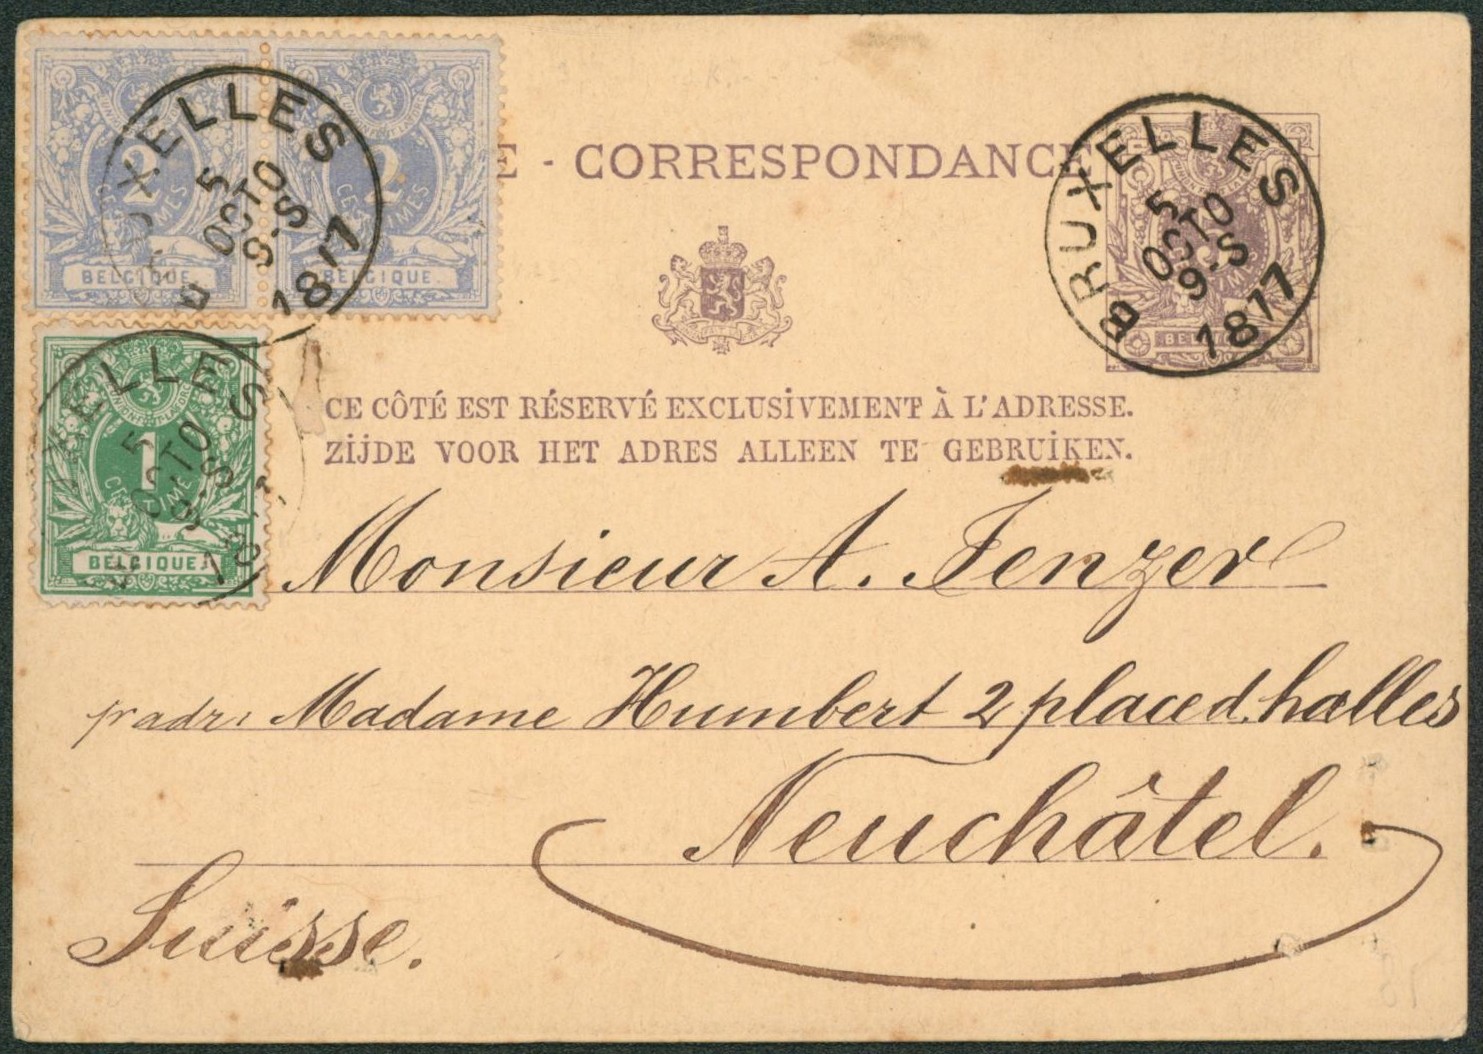 2 CENTIMES BELGIQUE.
2 CENTIMES BELGIQUE.
UXELLES 5 OCTO 9-S 1877
E - CORRESPONDANCE
BRUXELLES 5 OCTO 9-S 1877
1 CENTIME BELGIQUE
XELLES 5 OCTO 9-S 187
CE CÔTÉ EST RÉSERVÉ EXCLUSIVEMENT À L'ADRESSE.
ZIJDE VOOR HET ADRES ALLEEN TE GEBRUIKEN.
Monsieur A. Jenzer
pr adr: Madame Humbert 2 place d. halles
Neuchâtel.
Suisse.